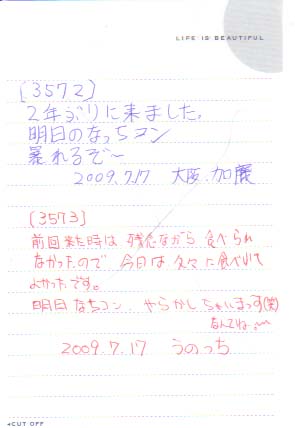 LIFE IS BEAUTIFUL
[3572]
2年ぶりに来ました。
明日のなっちコン
暴れるぞ～
2009.7.17 大阪.加展
[3573]
前回来た時は 残念ながら 食べられ
なかったので 今日は 久々に食べれて
よかったです。
明日 なちコン、やらかしちゃいまっす(笑)
なんてね
2009.7.17 うのっち
CUT OFF